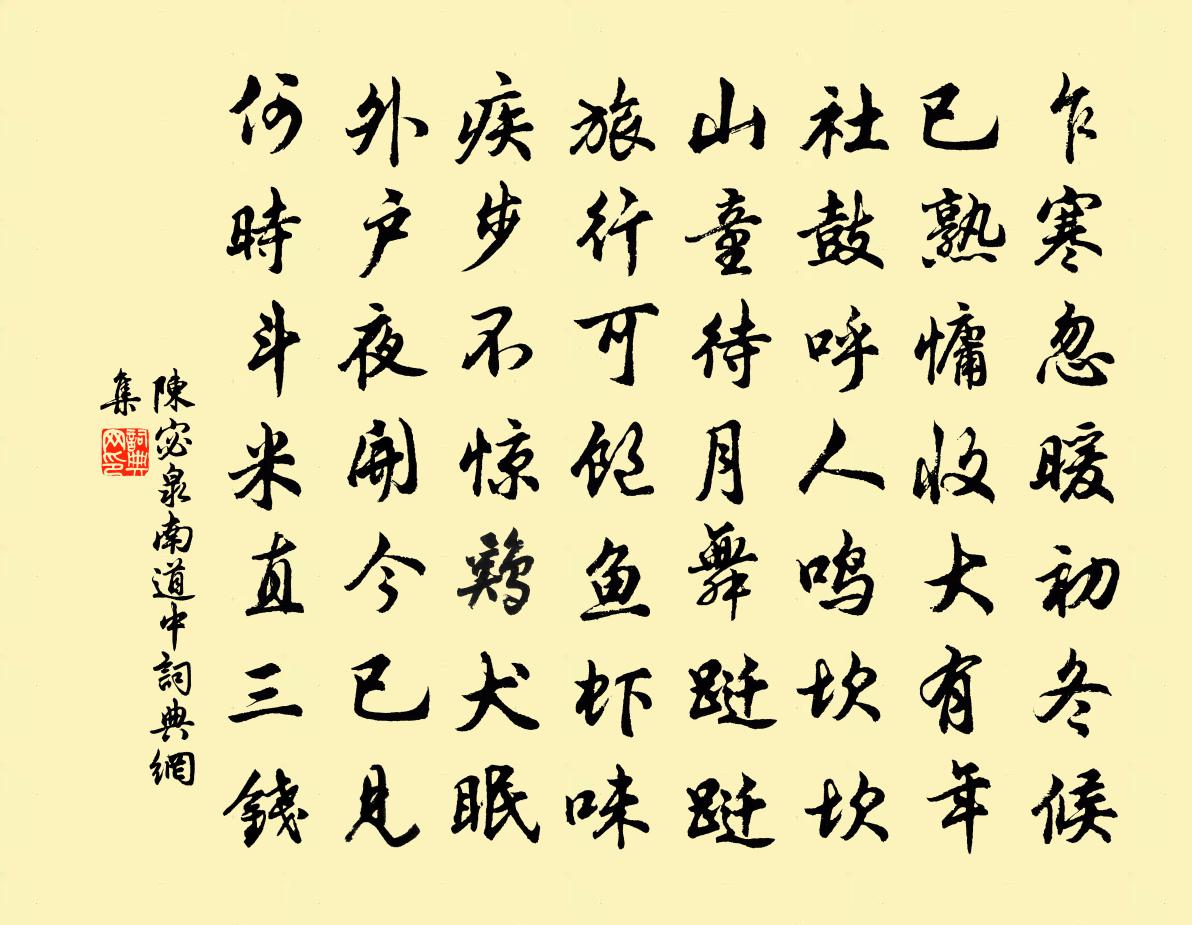 乍寒忽暖初冬候
已熟慵收大有年
社鼓呼人鸣坎坎
山童待月舞跹跹
旅行可饱鱼虾味
疾步不惊鸡犬眠
外户夜開今已見
何時斗米直三錢
陳宓泉南道中詞典網
集
詞典
网印